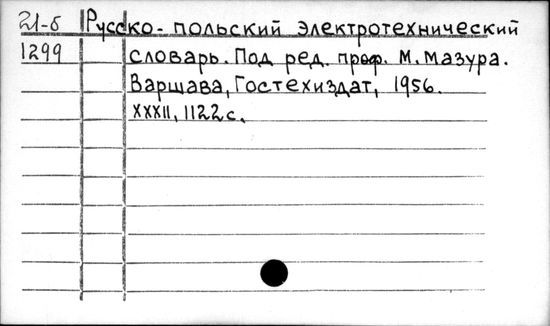 21-б Русско-польский электротехнический
1299 словарь. Под ред. проф. М. Мазура.
Варшава, Гостехиздат, 1956.
XXXII, 1122 с.